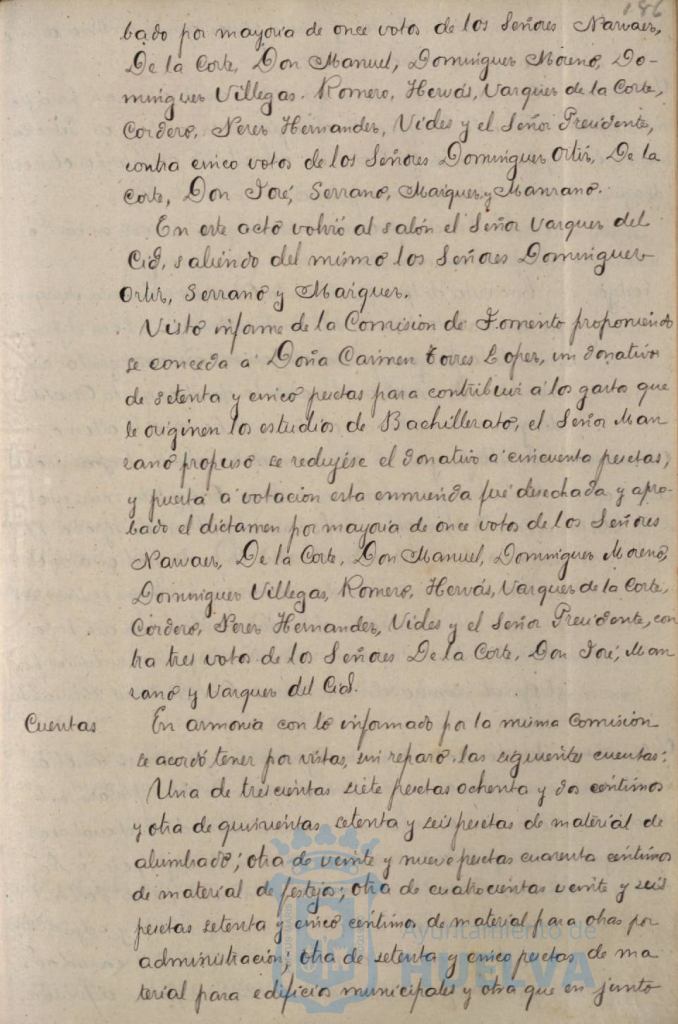 186
bado por mayoria de once votos de los Señores Narvaez,
De la Corte, Don Manuel, Dominguez Moreno, Do-
minguez Villegas, Romero, Hervás, Vazquez de la Corte,
Cordero, Perez Hernandez, Vides y el Señor Presidente,
contra cinco votos de los Señores Dominguez Ortiz, De la
Corte, Don José, Serrano, Maiquez y Manzano.
En este acto volvió al salón el Señor Vazquez del
Cid, saliendo del mismo los Señores Dominguez
Ortiz, Serrano y Maiquez.
Visto informe de la Comision de Fomento proponiendo
se conceda á Doña Carmen Torres Lopez, un donativo
de setenta y cinco pesetas para contribuir á los gastos que
le originen los estudios de Bachillerato, el Señor Man-
zano propuso se redujese el donativo á cincuenta pesetas,
y puesta á votación esta enmienda fué desechada y apro-
bado el dictamen por mayoria de once votos de los Señores
Narvaez, De la Corte, Don Manuel, Dominguez Moreno,
Dominguez Villegas, Romero, Hervás, Vazquez de la Corte,
Cordero, Perez Hernandez, Vides y el Señor Presidente, con
tra tres votos de los Señores De la Corte, Don José, Man-
zano y Vazquez del Cid.
Cuentas
En armonia con lo informado por la misma Comisión
se acordó tener por vistas, sin reparo, las siguientes cuentas:
Una de trescientas siete pesetas ochenta y dos centimos
y otra de quinientas setenta y seis pesetas de material de
alumbrado; otra de veinte y nueve pesetas cuarenta centimos
de material de festejos; otra de cuatrocientas veinte y seis
pesetas setenta y cinco centimos de material para obras por
administración; otra de setenta y cinco pesetas de ma
terial para edificios municipales y otra que en junto
Ayuntamiento de
HUELVA